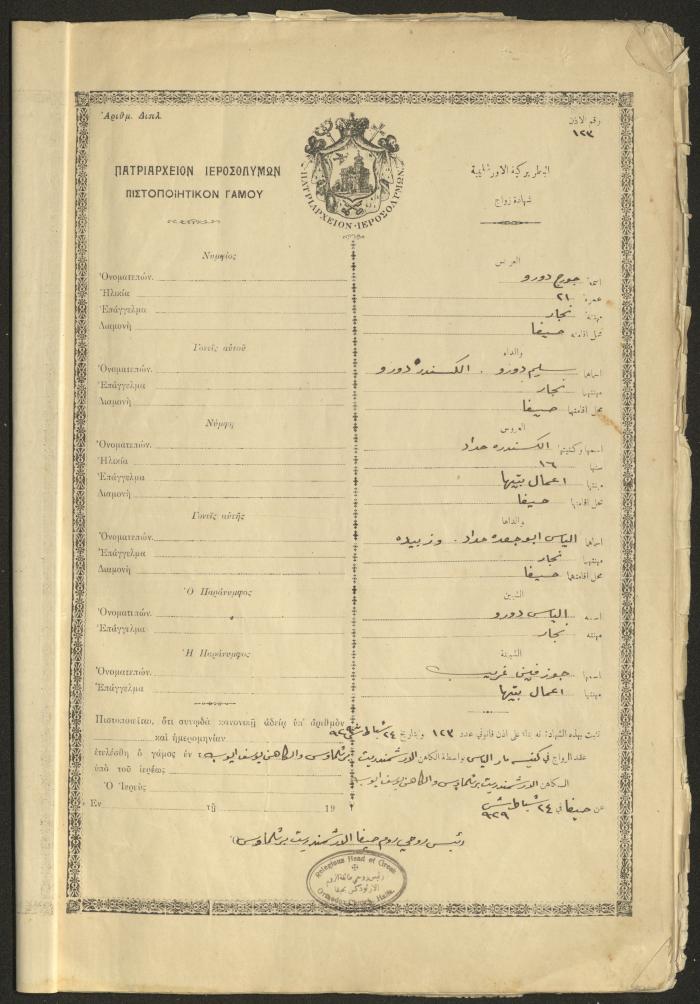 Ἀριθμ. Διπλ.
رقم الاذن
١٢٣
ΠΑΤΡΙΑΡΧΕΙΟΝ ΙΕΡΟΣΟΛΥΜΩΝ
ΠΙΣΤΟΠΟΙΗΤΙΚΟΝ ΓΑΜΟΥ
ΠΑΤΡΙΑΡΧΕΙΟΝ·ΙΕΡΟΣΟΛΥΜΩΝ
البطريركية الاورشليمية
شهادة زواج
Νυμφίος
Ὀνοματεπών.
Ἡλικία
Ἐπάγγελμα
Διαμονὴ
العريس
اسمه جورج دورو
عمره ٢١
مهنته نجار
محل اقامته حيفا
Γονεῖς αὐτοῦ
Ὀνοματεπών.
Ἐπάγγελμα
Διαμονὴ
والداه
اسماهما سليم دورو . الكسندره دورو
مهنتهما نجار
محل اقامتهما حيفا
Νύμφη
Ὀνοματεπών.
Ἡλικία
Ἐπάγγελμα
Διαμονὴ
العروس
اسمها وكنيتها الكسندره حداد
سنها ١٦
مهنتها اعمال بيتها
محل اقامتها حيفا
Γονεῖς αὐτῆς
Ὀνοματεπών.
Ἐπάγγελμα
Διαμονὴ
والداها
اسماهما الياس ابو جعده حداد . وزبيده
مهنتهما نجار
محل اقامتهما حيفا
Ὁ Παράνυμφος
Ὀνοματεπών.
Ἐπάγγελμα
الشبين
اسمه الياس دورو
مهنته نجار
Ἡ Παράνυμφος
Ὀνοματεπών.
Ἐπάγγελμα
الشبينة
اسمها جوزفين غريب
مهنتها اعمال بيتها
Πιστοποιεῖται, ὅτι συνῳδὰ κανονικῇ ἀδείᾳ ὑπ' ἀριθμὸν
καὶ ἡμερομηνίαν
ἐτελέσθη ὁ γάμος ἐν
ὑπὸ τοῦ ἱερέως
Ὁ Ἱερεὺς
Ἐν τῇ 19
ثابت بهذه الشهادة انه بناء على اذن قانوني عدد ١٢٣ وبتاريخ ٢٤ شباط سنة ٩٢٩
عقد الزواج في كنيسة مار الياس بواسطة الكاهن الارشمندريت برثلماوس والكاهن يوسف ايوب
الكاهن الارشمندريت برثلماوس والكاهن يوسف ايوب
عن حيفا في ٢٤ شباط سنة ٩٢٩
رئيس روحي روم حيفا الارشمندريت برثلماوس
Religious Head of Greek
رئيس روحي طائفة الروم
الارثوذكس بحيفا
Orthodox Church, Haifa